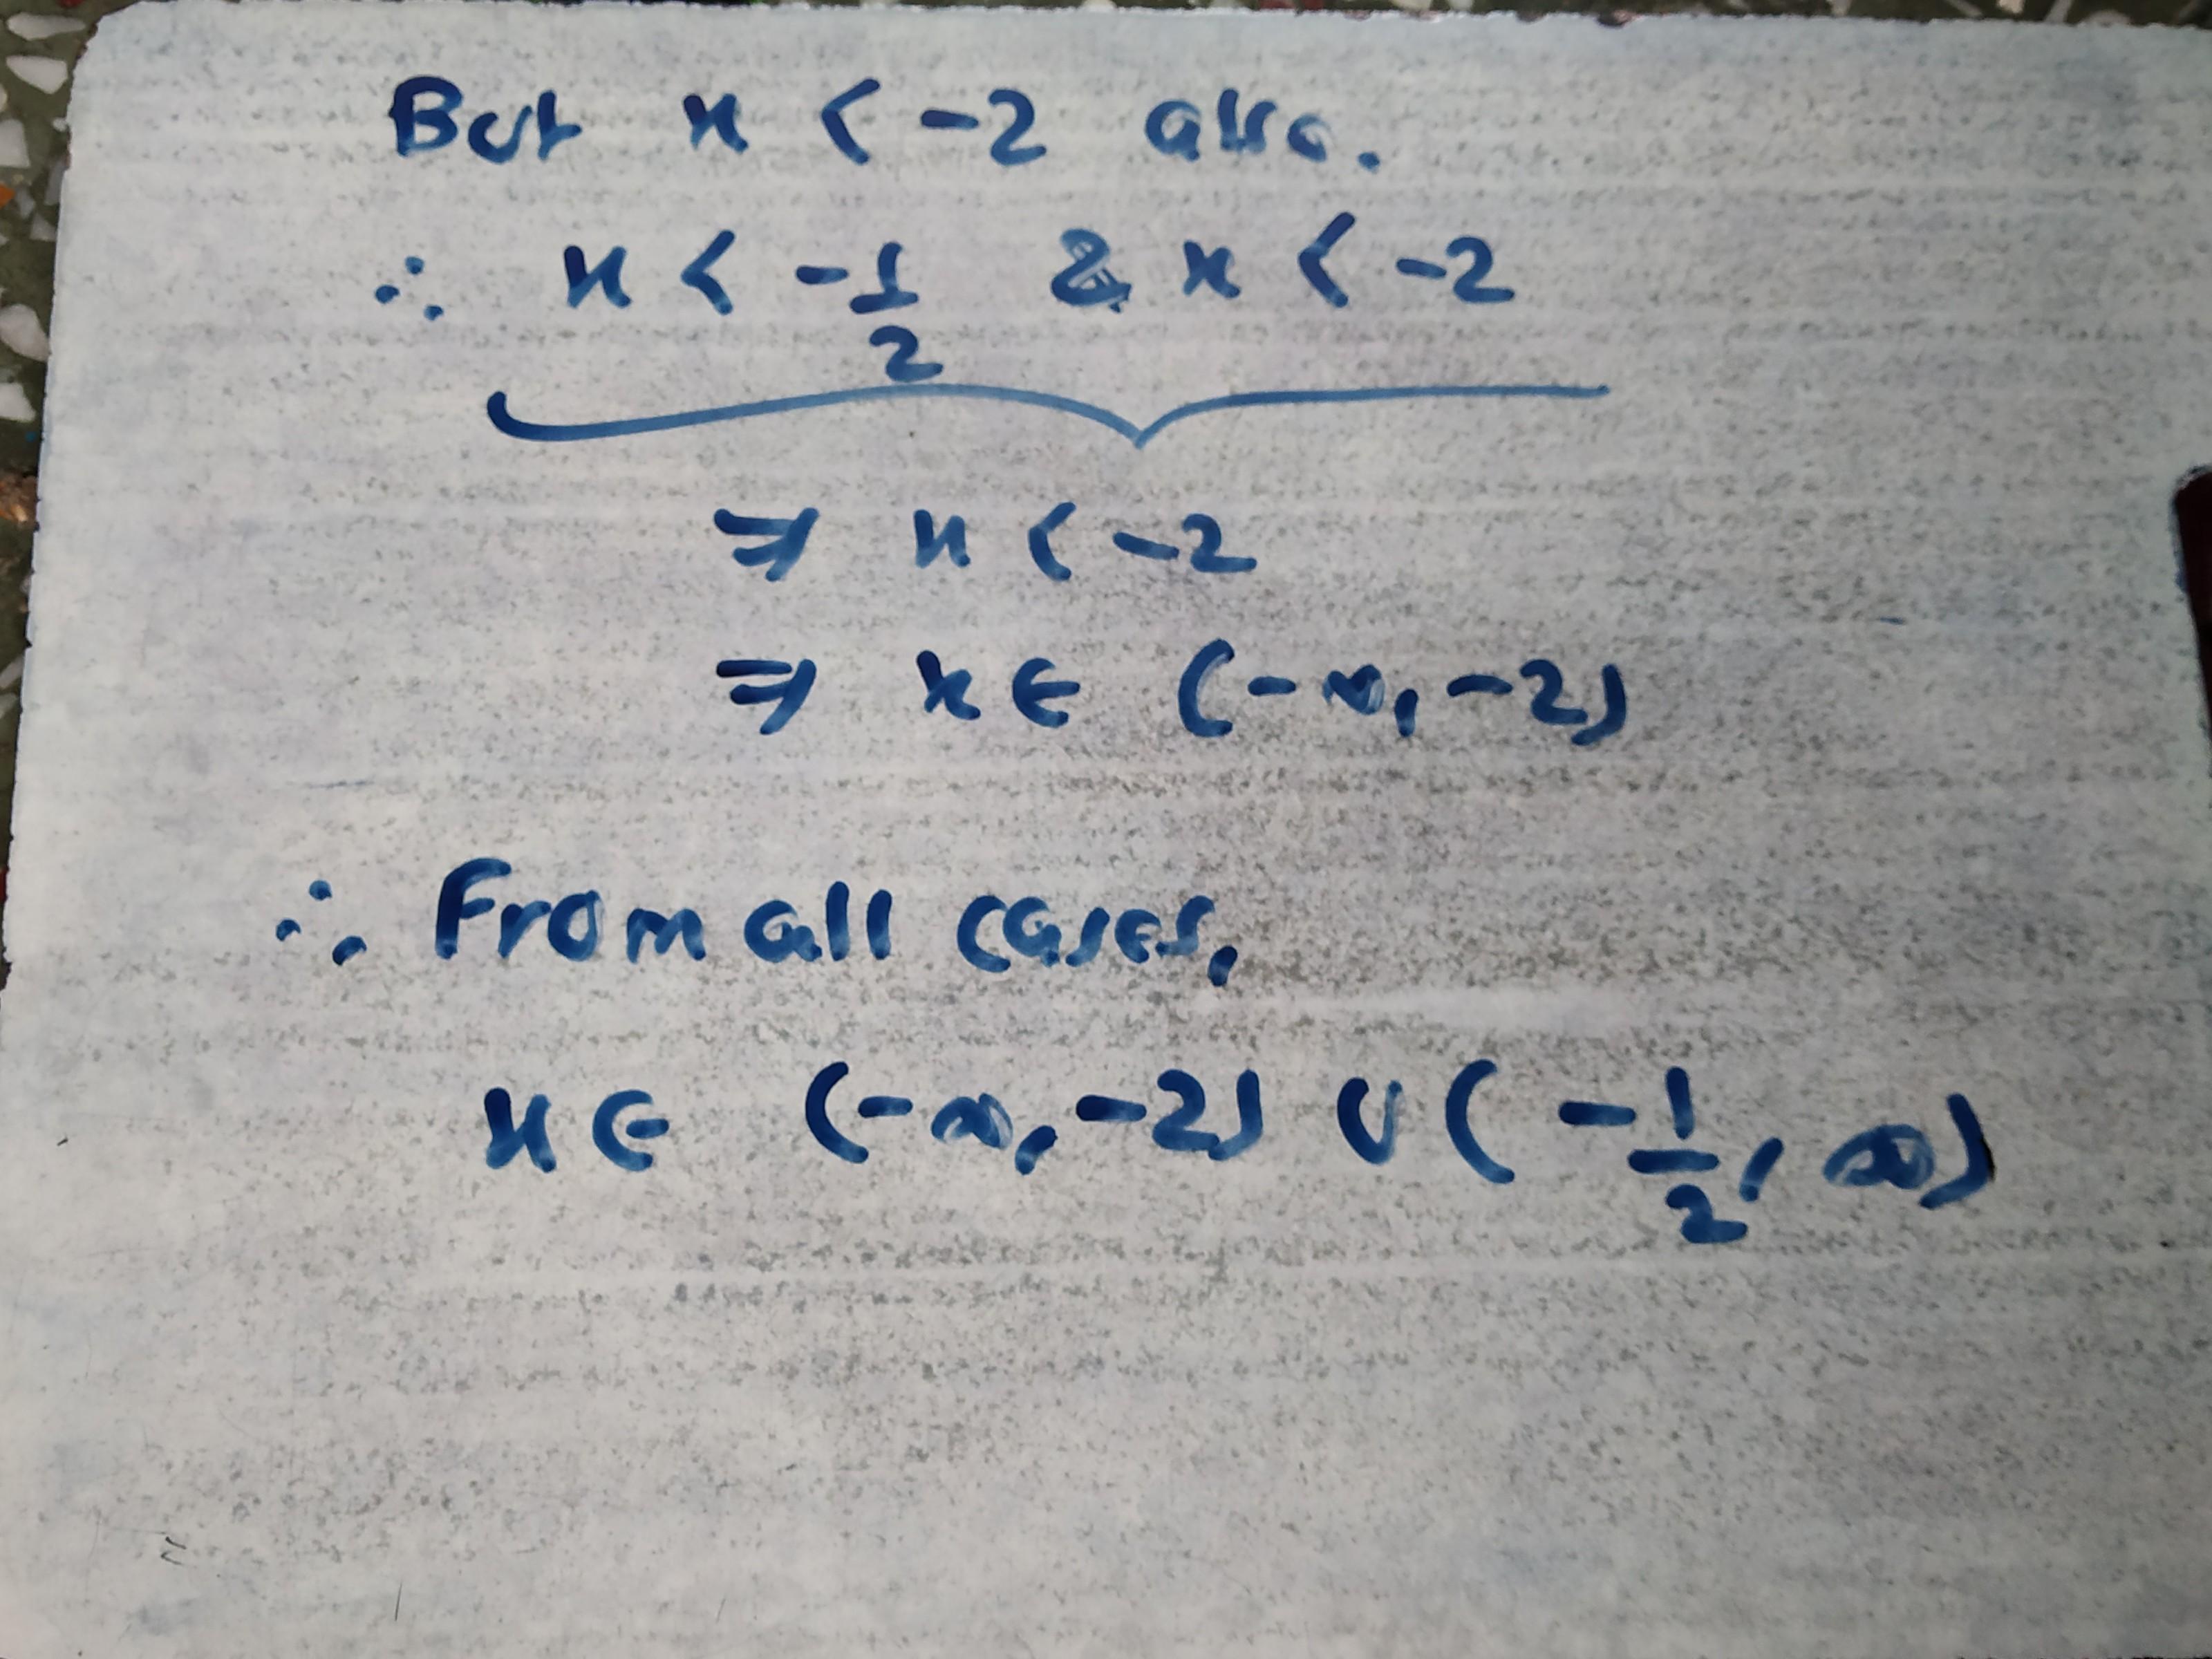 But x < -2 also.
∴ x < -1/2 & x < -2
⇒ x < -2
⇒ x ∈ (-∞, -2)
∴ From all cases,
x ∈ (-∞, -2) ∪ (-1/2, ∞)